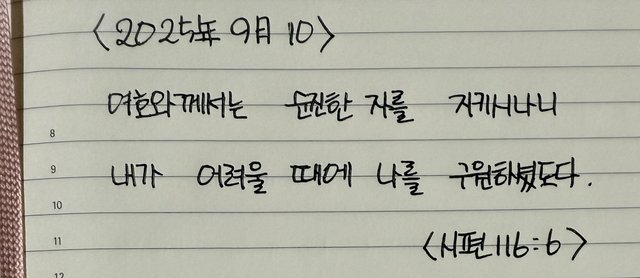 <2025年 9月 10>
여호와께서는 순진한 자를 지키시나니
8
내가 어려울 때에 나를 구원하셨도다.
9
10
<시편 116:6>
11
12